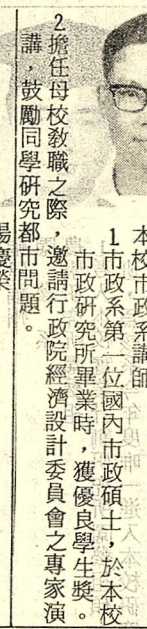 本校市政系講師
1市政系第一位國內市政碩士，於本校
市政研究所畢業時，獲優良學生獎。
2擔任母校教職之際，邀請行政院經濟設計委員會之專家演
講，鼓勵同學研究都市問題。